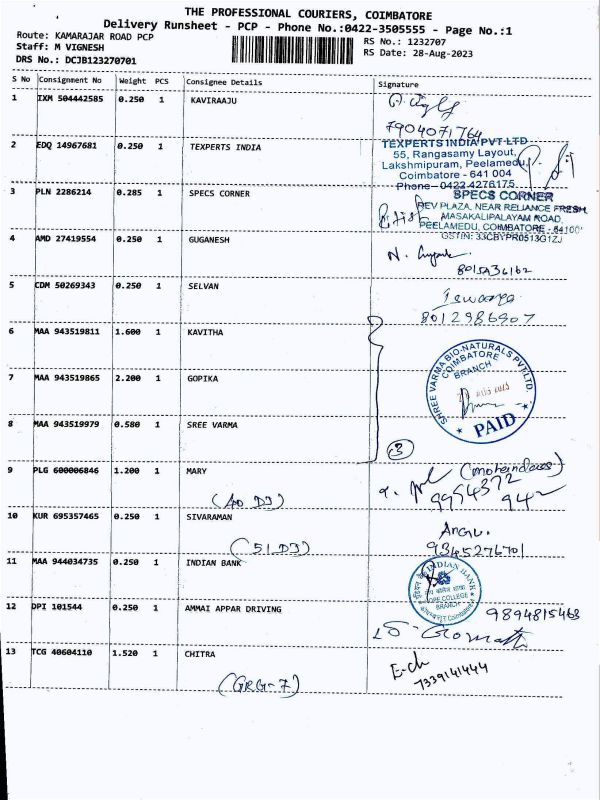 THE PROFESSIONAL COURIERS, COIMBATORE
Delivery Runsheet - PCP - Phone No.:0422-3505555 - Page No.:1
Route: KAMARAJAR ROAD PCP
Staff: M VIGNESH
DRS No.: DCJB123270701
RS No.: 1232707
RS Date: 28-Aug-2023
S No Consignment No Weight PCS Consignee Details Signature
1 IXM 504442585 0.250 1 KAVIRAAJU
7904071764
2 EDQ 14967681 0.250 1 TEXPERTS INDIA
TEXPERTS INDIA PVT LTD
55, Rangasamy Layout,
Lakshmipuram, Peelamedu,
Coimbatore - 641 004
Phone - 0422 4276175
3 PLN 2286214 0.285 1 SPECS CORNER
SPECS CORNER
DEV PLAZA, NEAR RELIANCE FRESH
MASAKALIPALAYAM ROAD,
PEELAMEDU, COIMBATORE
GSTIN: 33CBYPR0513G1ZJ
4 AMD 27419554 0.250 1 GUGANESH
5 CDM 50269343 0.250 1 SELVAN
8012986907
6 MAA 943519811 1.600 1 KAVITHA
7 MAA 943519865 2.200 1 GOPIKA
SHREE VARMA BIO-NATURALS PVT.LTD.
COIMBATORE
BRANCH
PAID
8 MAA 943519979 0.580 1 SREE VARMA
3
9 PLG 600006846 1.200 1 MARY
(40 D3)
10 KUR 695357465 0.250 1 SIVARAMAN
(51 D3)
9345276701
11 MAA 944034735 0.250 1 INDIAN BANK
INDIAN BANK
COLLEGE
BRANCH
12 DPI 101544 0.250 1 AMMAI APPAR DRIVING
9894815463
13 TCG 40604110 1.520 1 CHITRA
(GRG-7)
E-ch
7339141444